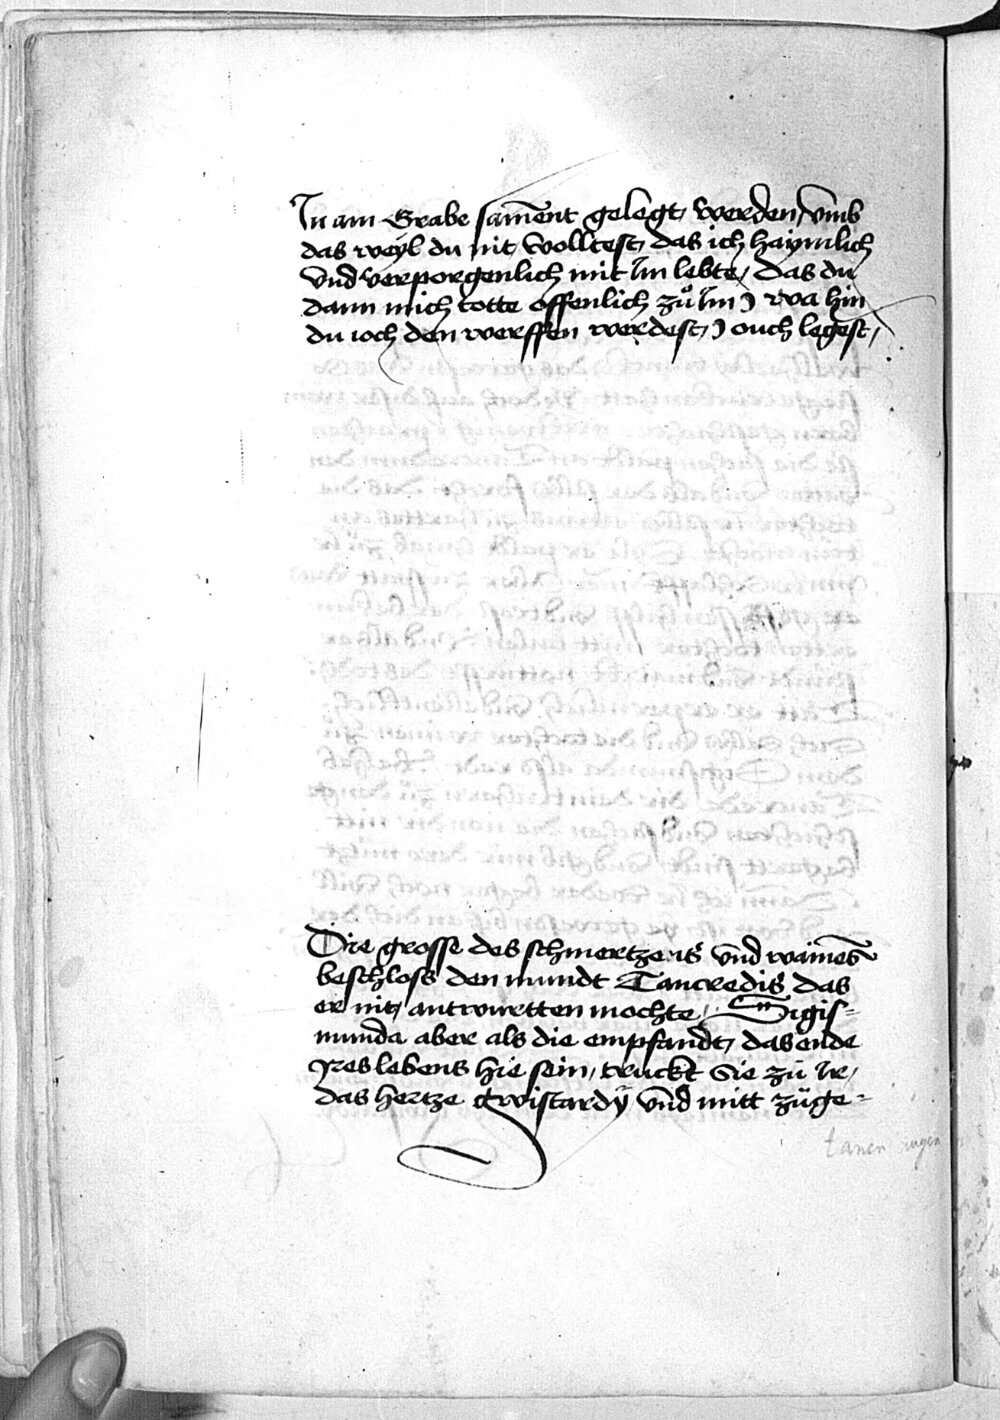 In ain Grabe sament gelegt, werden, vmb
das weyl du nit, wolltest, das ich haymlich
vnd verporgenlich mit Im lebte, das du
dann mich totte offenlich zů Im) wa hin
du ioch den werffen werdest,) ouch legest,
Die grosse des schmertzens vnd wainēs
beschloss den mundt Tancredis das
er nit, antwurtten mochte, Sigis=
munda aber als die empfandt, das ende
Ires lebens hie sein, truckt Sie zů Ir,
das hertze gwistardÿ vnd mitt züge=
tanen ougen